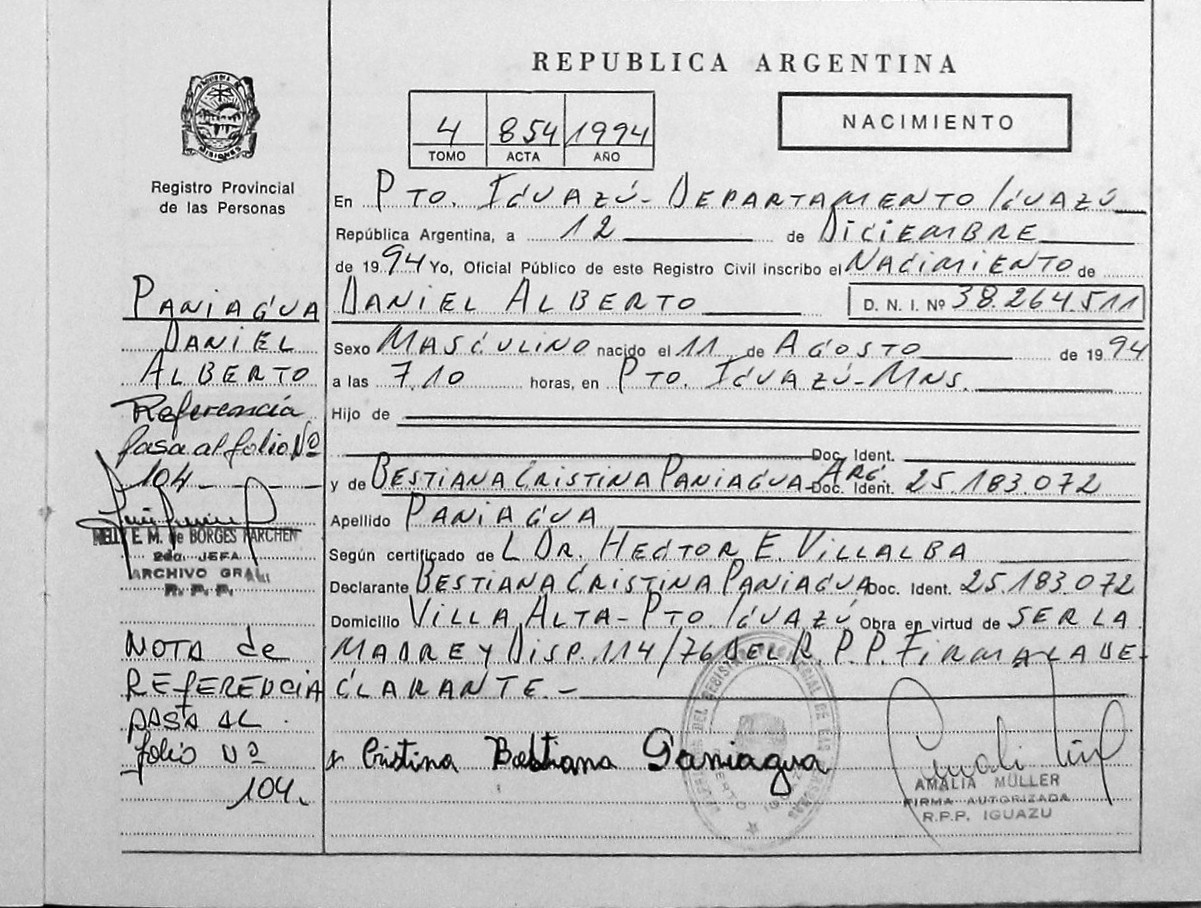 REPUBLICA ARGENTINA
4 854 1994
TOMO ACTA AÑO
NACIMIENTO
MISIONES
Registro Provincial
de las Personas
En PTO. IGUAZÚ - DEPARTAMENTO IGUAZÚ
República Argentina, a 12 de DICIEMBRE
de 1994 Yo, Oficial Público de este Registro Civil inscribo el NACIMIENTO de
DANIEL ALBERTO D. N. I. Nº 38.264.511
Sexo MASCULINO nacido el 11 de AGOSTO de 1994
a las 7,10 horas, en PTO. IGUAZÚ - MNS.
Hijo de
Doc. Ident.
y de BESTIANA CRISTINA PANIAGUA Doc. Ident. ARG. 25.183.072
Apellido PANIAGUA
Según certificado de L DR. HECTOR E. VILLALBA
Declarante BESTIANA CRISTINA PANIAGUA Doc. Ident. 25.183.072
Domicilio VILLA ALTA - PTO. IGUAZÚ Obra en virtud de SER LA
MADRE Y DISP. 114/76 DEL R.P.P. FIRMA LA DE-
CLARANTE -
Cristina Bestiana Paniagua
AMALIA MÜLLER
FIRMA AUTORIZADA
R.P.P. IGUAZU
PANIAGUA
DANIEL
ALBERTO
Referencia
pasa al folio Nº
104
NELLY E. M. de BORGES KARCHEN
2da. JEFA
ARCHIVO GRAL.
R. P. P.
NOTA de
REFERENCIA
PASA AL
folio Nº
104.